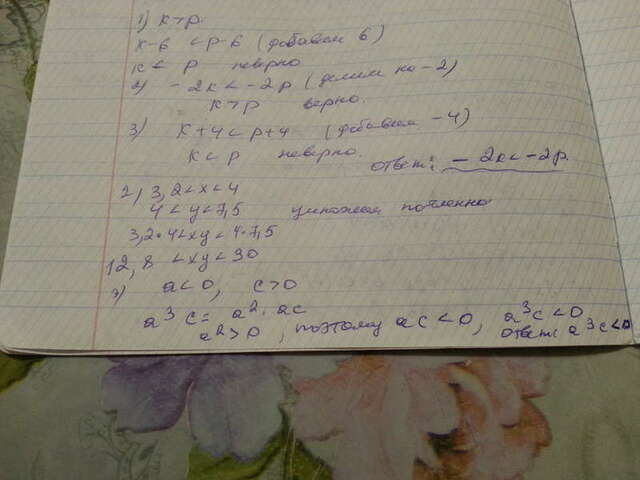 1) k>p.
k-6 < p-6 (добавляем 6)
k < p неверно
2) - 2k < -2p (делим на -2)
k>p верно.
3) k+4 < p+4 (добавляем -4)
k < p неверно.
ответ: - 2k < -2p.
2) 3,2 < x < 4
4 < y < 7,5 умножаем почленно
3,2*4 < xy < 4*7,5
12,8 < xy < 30
3) a < 0, c > 0
a³c = a²·ac
a² > 0, поэтому ac < 0, a³c < 0
ответ: a³c < 0